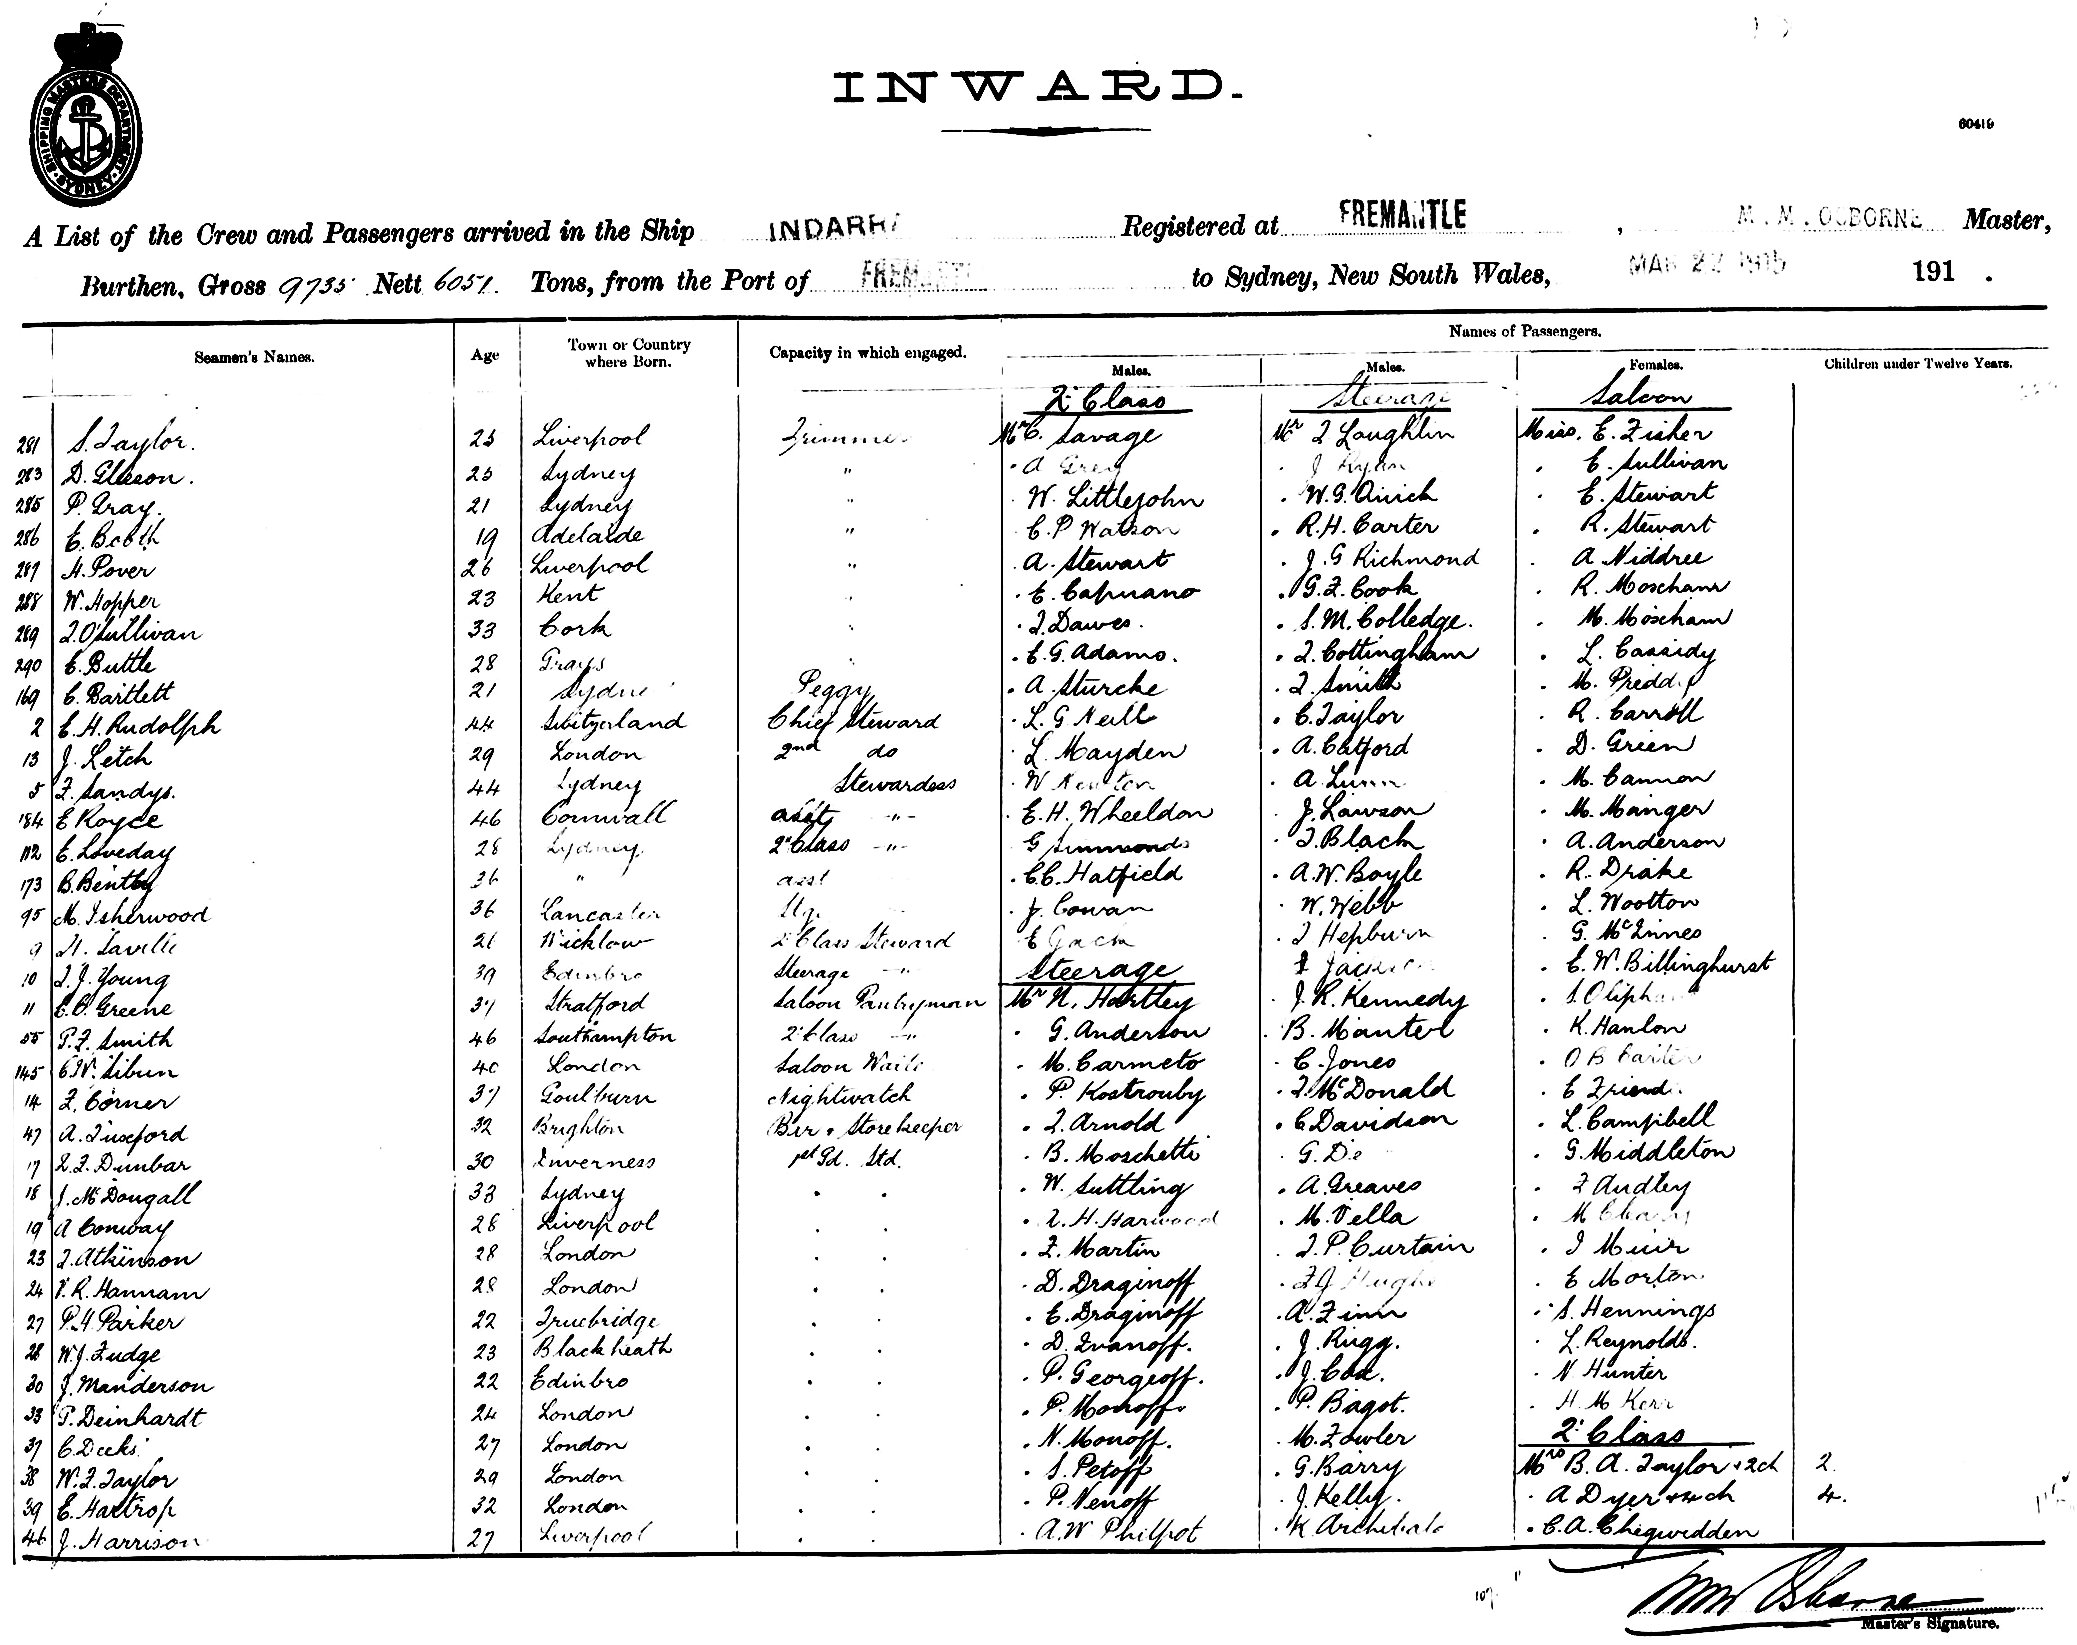 SHIPPING MASTERS DEPARTMENT
SYDNEY
INWARD.
60419
A List of the Crew and Passengers arrived in the Ship INDARRA Registered at FREMANTLE, M. M. OSBORNE Master,
Burthen, Gross 9735 Nett 6051. Tons, from the Port of FREMANTLE to Sydney, New South Wales, MAR 22 1915 191 .
Names of Passengers.
Seamen's Names. Age Town or Country where Born. Capacity in which engaged. Males. Males. Females. Children under Twelve Years.
2 Class Steerage Saloon
281 S. Taylor. 23 Liverpool Trimmer Mr C. Savage Mr T Loughlin Miss. E. Fisher
283 D. Gleeson. 25 Sydney " . A Grey . J Ryan . E. Sullivan
285 P. Gray. 21 Sydney " . W. Littlejohn . W.G. Quick . E. Stewart
286 E. Booth 19 Adelaide " . C. P Watson . R.H. Carter . R. Stewart
287 H. Pover 26 Liverpool " . A. Stewart . J. G Richmond . A Niddree
288 W. Hopper 23 Kent " . E. Capuano . G. F. Cook . R. Moscham
289 T. O'Sullivan 33 Cork " . T. Dawes. . S. M. Colledge. . M. Moscham
290 C. Buttle 28 Grays " . E. G. Adams. . T. Cottingham . L. Cassidy
169 C. Bartlett 21 Sydney Peggy . A. Sturcke . T. Smith . M. Preddy
2 E. H. Rudolph 44 Switzerland Chief Steward . L. G Neill . C. Taylor . R. Carroll
13 J. Letch 29 London 2nd do . L. Mayden . A. Catford . D. Green
5 F. Sandys. 44 Sydney Stewardess . W Newton . A. Lunn . M. Cannon
184 E Royce 46 Cornwall asst -"- . E. H. Wheeldon . J. Lawson . M. Manger
112 E. Loveday 28 Sydney 2 Class -"- . G Simmonds . T. Black . A. Anderson
173 B. Bently 36 " asst . C.C. Hatfield . A.W. Boyle . R. Drake
95 M. Isherwood 36 Lancaster Stg. . J. Cowan . W. Webb . L. Wootton
9 H. Saville 21 Wicklow 2 Class Steward . E Jack . T Hepburn . G. McInnes
10 T. J. Young 39 Edinbro Steerage -"- Steerage . Jackson . E. W. Billinghurst
11 C. O. Greene 37 Stratford Saloon Pantryman Mr N. Hartley . J. R. Kennedy . S. Oliphant
55 P. F. Smith 46 Southampton 2 Class -"- . G. Anderson . B. Manter . K. Hanlon
145 C.W. Sibun 40 London Saloon Waiter . M. Carmeto . C. Jones . O B Carter
14 F. Corner 37 Goulburn Nightwatch . P. Kostrouby . T. McDonald . E Friend.
47 A. Tuxford 32 Brighton Bar & Storekeeper . T. Arnold . C Davidson . L. Campbell
17 L. F. Dunbar 30 Inverness 1st Gd. Std. . B. Moschetti . G. De . G. Middleton
18 J. McDougall 33 Sydney . . . W. Suttling . A. Greaves . F Audley
19 A Conway 28 Liverpool . . . T. H. Harwood . M. Vella . M
23 T. Atkinson 28 London . . . F. Martin . T. P. Curtain . J Muir
24 V. R. Hannam 28 London . . . D. Draginoff . F J Hughes . E Morton
27 P. H. Parker 22 Truebridge . . . E. Draginoff . A. Finn . S. Hennings
28 W. J. Fudge 23 Blackheath . . . D. Ivanoff. . J. Rugg. . L. Reynolds.
30 J. Manderson 22 Edinbro . . . P. Georgeoff. . J. Cox. . N Hunter
33 P. Deinhardt 24 London . . . P. Monoff. . P. Bagot. . H. M Kerr
37 C. Deeks. 27 London . . . N. Monoff. . M. Fowler 2 Class
38 W. F. Taylor 29 London . . . S. Petoff . G. Barry Mrs B. A. Taylor + 2 ch 2.
39 E. Hartrop 32 London . . . P. Nenoff . J. Kelly. . A Dyer + 4 ch 4.
46 J. Harrison 27 Liverpool . . . A. W Philpot . K Archibald . C. A. Chegwidden
107
Master's Signature.